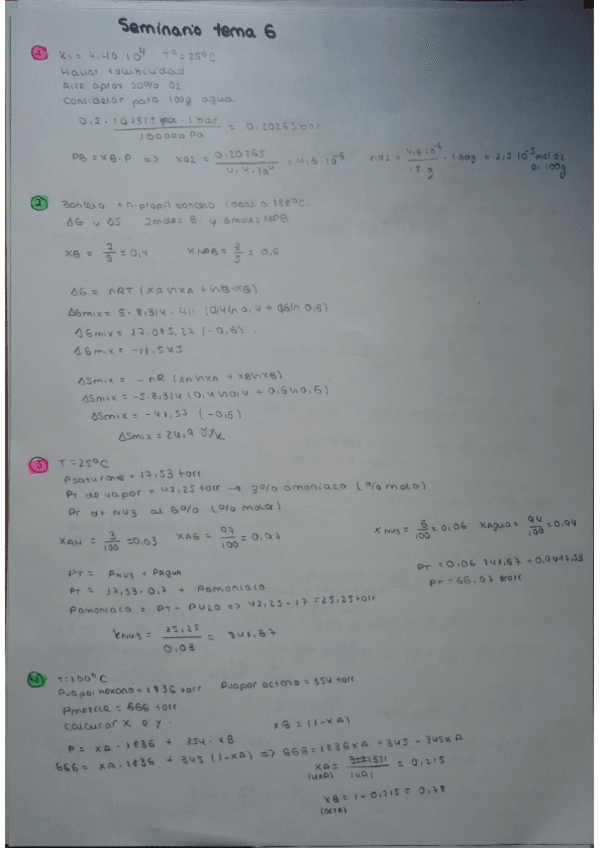 Seminario tema 6
1 K1 = 4,40·10⁴ Tº = 25ºC
Hallar solubilidad
Aire aprox 20% O2
Considerar para 100g agua
0,2 · 101325 Pa · 1 bar / 100000 Pa = 0,20265 bar
PB = XB·P => XO2 = 0,20265 / 4,4·10⁴ = 4,6·10⁻⁶ nO2 = 4,6·10⁻⁶ / 18 g · 100g = 2,5·10⁻⁵ mol O2
en 100g
2 Benceno + n-propil benceno ideal a 138ºC
ΔG y ΔS 2 moles B y 3 moles NPB
XB = 2/5 = 0,4 XNPB = 3/5 = 0,6
ΔG = nRT (XA ln XA + XB ln XB)
ΔGmix = 5 · 8,314 · 411 (0,4 ln 0,4 + 0,6 ln 0,6)
ΔGmix = 17.085,27 (-0,6)
ΔGmix = -11,5 kJ
ΔSmix = -nR (XA ln XA + XB ln XB)
ΔSmix = -5·8,314 (0,4 ln 0,4 + 0,6 ln 0,6)
ΔSmix = -41,57 (-0,6)
ΔSmix = 24,9 J/K
3 T = 25ºC
Psaturante = 17,53 torr
PT de vapor = 42,25 torr → 3% amoniaco (% molo)
PT de NH3 al 6% (% molar)
XAN = 3/100 = 0,03 XAG = 97/100 = 0,97 XNH3 = 6/100 = 0,06 XAgua = 94/100 = 0,94
PT = PNH3 + PAgua
PT = 0,06 · 841,67 + 0,94·17,53
PT = 17,53·0,97 + Pamoniaco
PT = 66,97 torr
Pamoniaco = PT - PH2O => 42,25 - 17 = 25,25 torr
KNH3 = 25,25 / 0,03 = 841,67
4 T = 100ºC
Pvapor hexano = 1836 torr Pvapor octano = 354 torr
Pmezcla = 666 torr
Calcular X e y.
XB = (1-XA)
P = XA · 1836 + 354 · XB
666 = XA·1836 + 345 (1-XA) => 666 = 1836XA + 345 - 345XA
XA = = 0,215
XB = 1 - 0,215 = 0,78